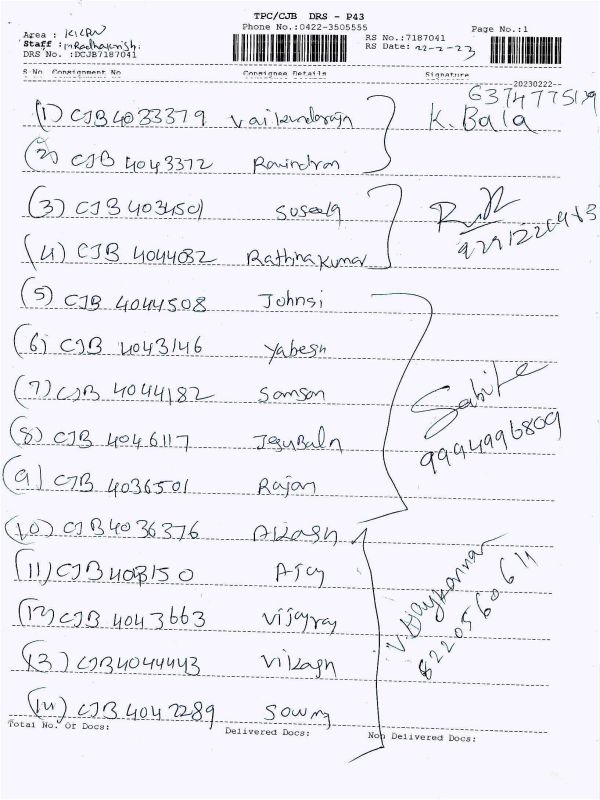 TPC/CJB DRS - P43
Phone No.:0422-3505555
Area : KKPN
RS No.:7187041
Page No.:1
Staff :
RS Date: 22-2-23
DRS No.:DCJB7187041
S No Consignment No Consignee Details Signature
20230222--
(1) CJB 4033379 Vaikundarajn K. Bala
(2) CJB 4043372 Ravindran
(3) CJB Suseela
(4) CJB 4044082 Rathinakumar
(5) CJB 4044508 Johnsi
(6) CJB 4043146 Yabesh
(7) CJB 4044182 Samson
(8) CJB 4046117 JeguBaln
9994996809
(9) CJB 4036501 Rajan
(10) CJB 4036376 Akash
(11) CJB Ajay
V. Vijaykannan
8220560611
(12) CJB 4043663 Vijayraj
(13) CJB4044443 Vikash
(14) CJB 4042289
Total No. Of Docs: Delivered Docs: Non Delivered Docs: